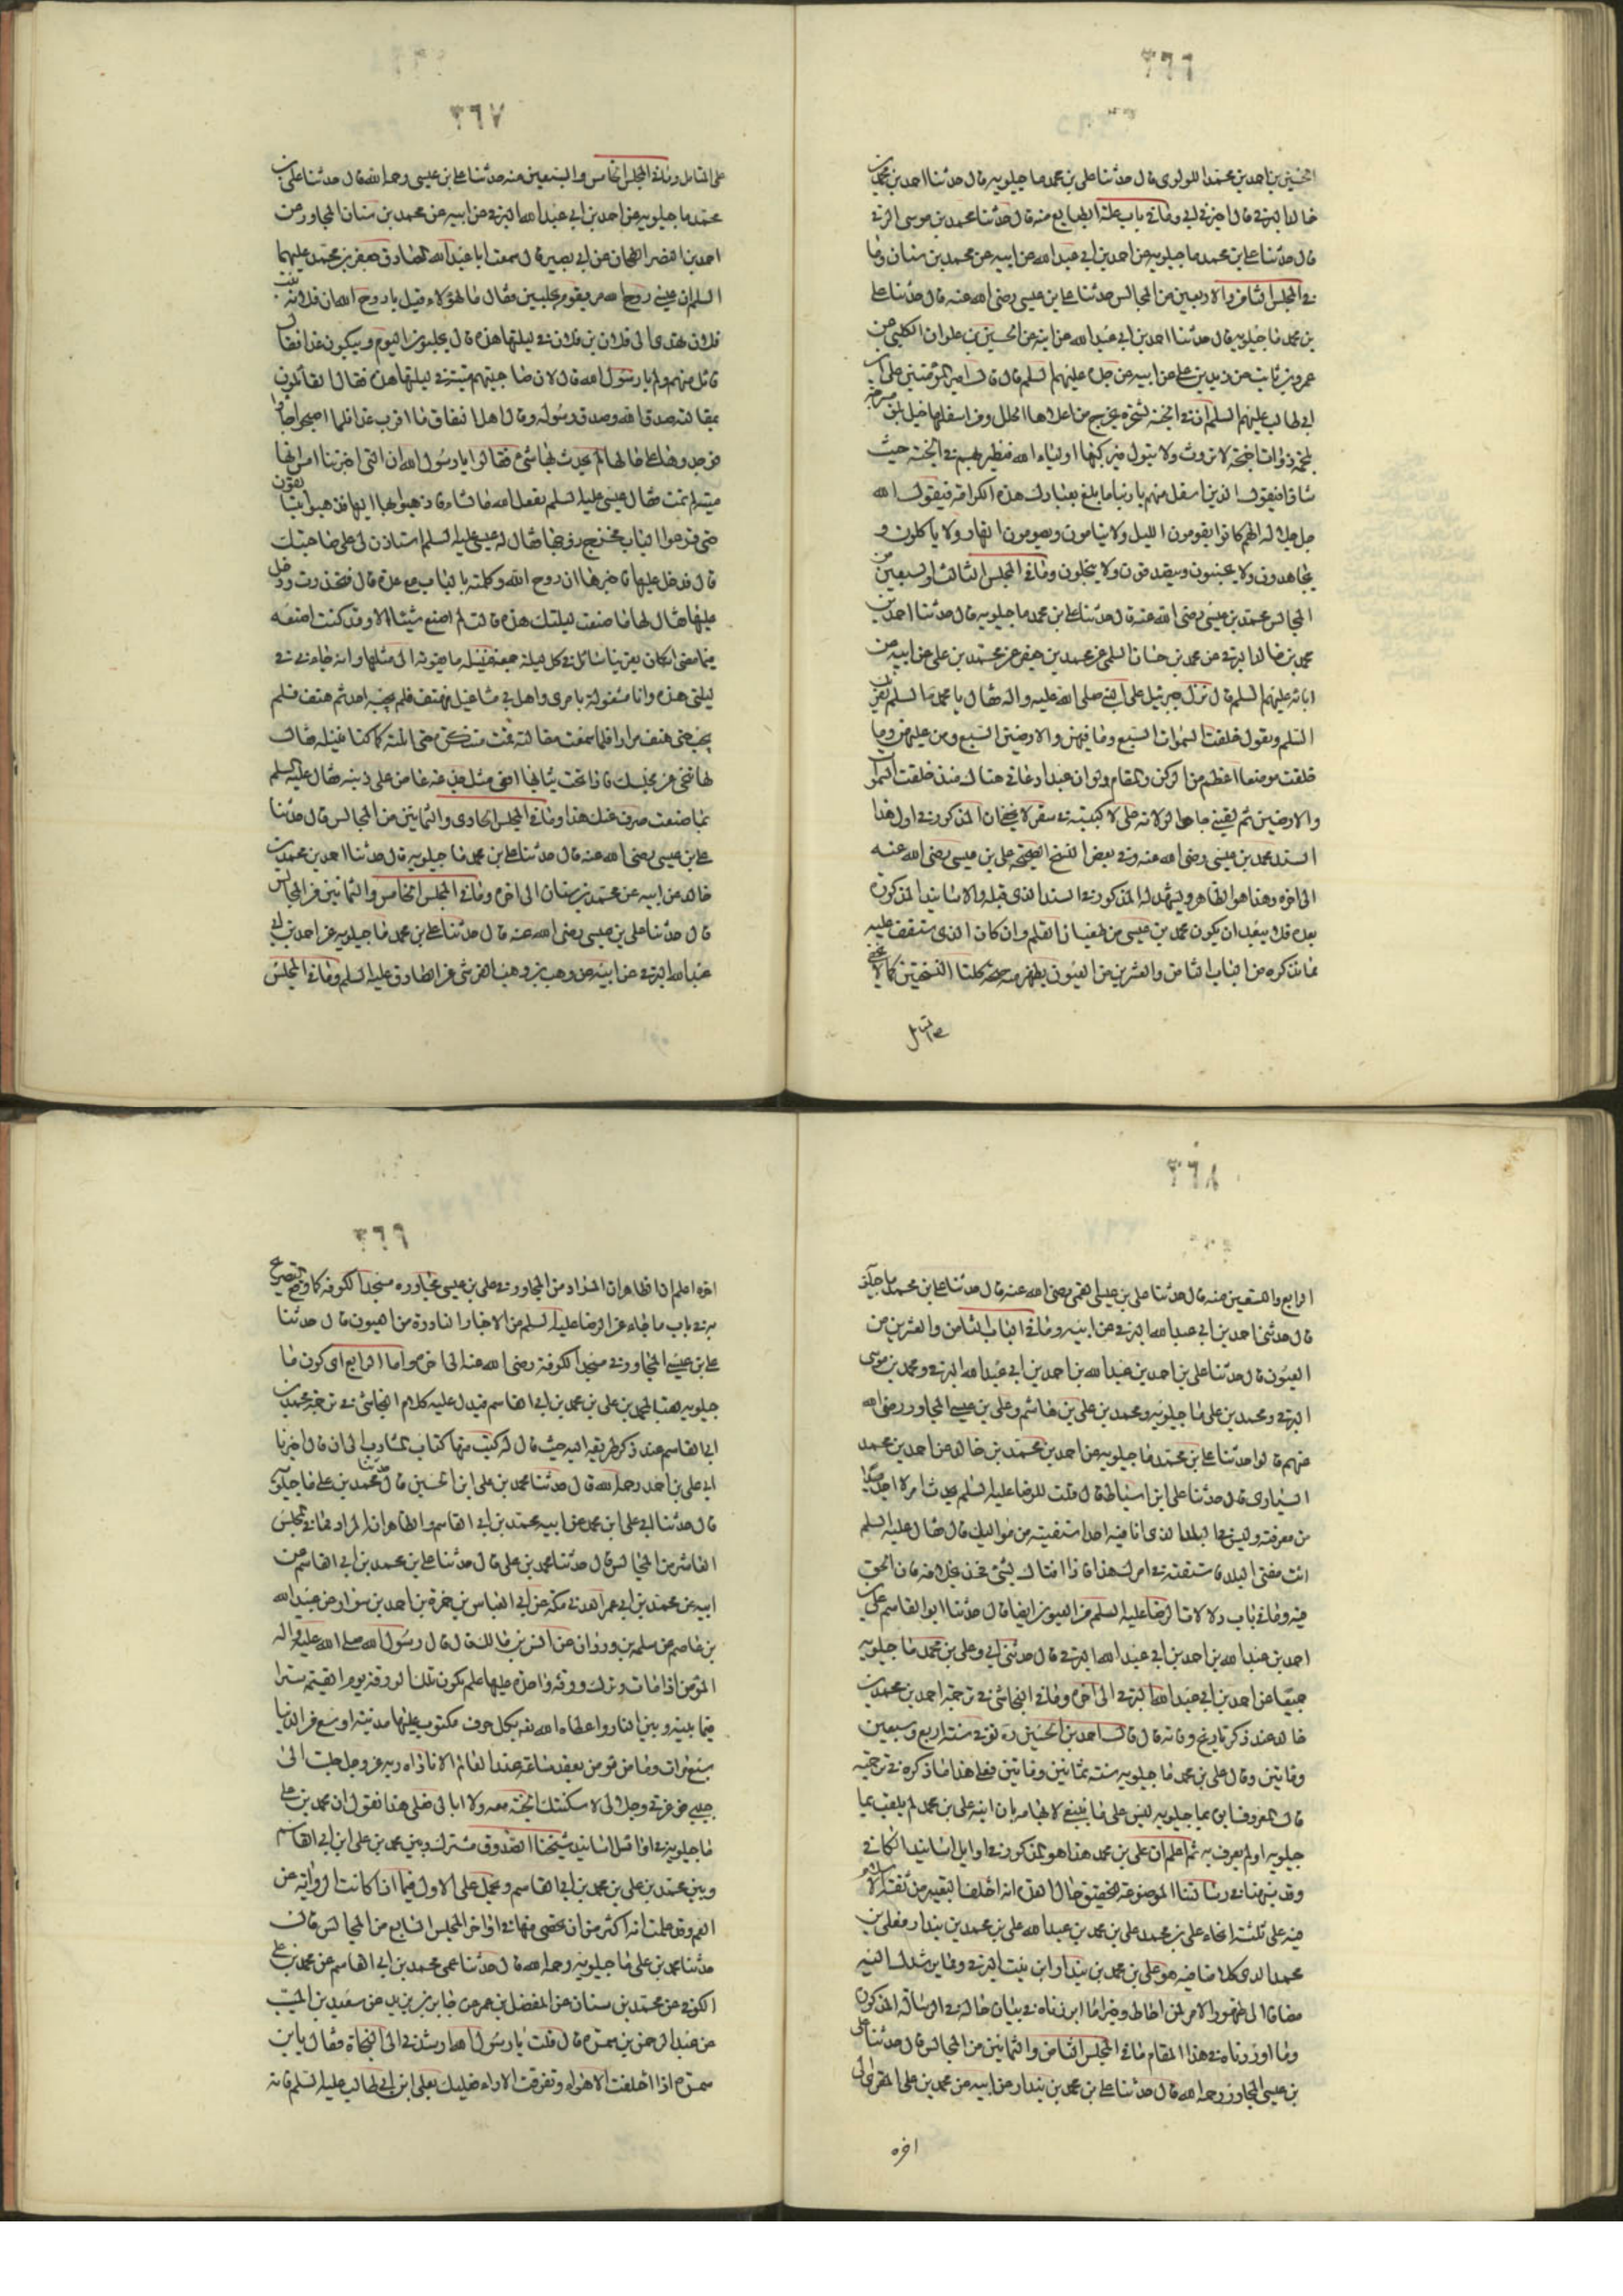 ٣٦٦
الحسين بن احمد بن محمد اللولوى قال حدثنا على بن محمد ماجيلويه قال حدثنا احمد بن محمد بن
خالد البرقى قال اخبرنى ابى وفى باب علة الطبايع منه قال حدثنا محمد بن موسى البرقى
قال حدثنا على بن محمد ماجيلويه عن احمد بن ابى عبد الله عن ابيه عن محمد بن سنان وفى
فى المجلس الثامن والاربعين من المجالس حدثنا على بن عيسى رضى الله عنه قال حدثنا على
بن محمد ماجيلويه قال حدثنا احمد بن ابى عبد الله عن ابيه عن الحسين بن علوان الكلبى عن
عمرو بن ثابت عن زيد بن على عن ابيه عن جده عليهم السلم قال قال امير المؤمنين على بن
ابى طالب عليهم السلم ان فى الجنة لشجرة يخرج من اعلاها الحلل ومن اسفلها خيل بلق مسرجة
ملجمة ذوات اجنحة لا تروث ولا تبول فيركبها اولياء الله فتطير بهم فى الجنة حيث
شاؤا فيقول الذين اسفل منهم يا ربنا ما بلغ بعبادك هذه الكرامة فيقول الله
جل جلاله انهم كانوا يقومون الليل ولا ينامون ويصومون النهار ولا ياكلون و
يجاهدون ولا يجبنون ويتصدقون ولا يبخلون وفى المجلس الثالث والسبعين من
المجالس محمد بن عيسى رضى الله عنه قال حدثنا على بن محمد ماجيلويه قال حدثنا احمد بن
محمد بن خالد البرقى عن محمد بن حسان السلمى عن محمد بن جعفر عن محمد بن على عن ابيه عن
ابائه عليهم السلم قال نزل جبرئيل على النبى صلى الله عليه واله فقال يا محمد السلم يقرئك
السلم ويقول خلقت السموات السبع وما فيهن والارضين السبع ومن عليهن وما
خلقت موضعا اعظم من الركن والمقام ولو ان عبدا دعانى هناك منذ خلقت السموات
والارضين ثم لقينى جاحدا لولاية على لاكببته فى سقر لا يخفى ان المذكور فى اول هذا
السند محمد بن عيسى رضى الله عنه وفى بعض النسخ الصحيحة على بن عيسى رضى الله عنه
الى اخره وهذا هو الظاهر ويشهد له المذكور فى السند الذى قبله والاسانيد المذكورة
بعده فلا يبعد ان يكون محمد بن عيسى من طغيان القلم وان كان الذى ستقف عليه
مما نذكره من الباب الثامن والعشرين من العيون يظهر منه صحة كلتا النسختين كما لا يخفى
على المتامل
٣٦٧
على المتامل وفى المجلس الخامس والسبعين منه حدثنا على بن عيسى رحمه الله قال حدثنا على بن
محمد ماجيلويه عن احمد بن ابى عبد الله البرقى عن ابيه عن محمد بن سنان المجاور عن
احمد بن النضر الطحان عن ابى بصير قال سمعت ابا عبد الله الصادق جعفر بن محمد عليهما
السلم ان عيسى روح الله مر بقوم مجلبين فقال ما لهؤلاء قيل يا روح الله ان فلانة بنت
فلان تهدى الى فلان بن فلان فى ليلتها هذه قال يجلبون اليوم ويبكون غدا فقال
قائل منهم ولم يا رسول الله قال لان صاحبتهم ميتة فى ليلتها هذه فقال القائلون
بمقالته صدق الله وصدق رسوله وقال اهل النفاق ما اقرب غدا فلما اصبحوا جاؤا
فوجدوها على حالها لم يحدث بها شئ فقالوا يا رسول الله ان التى اخبرتنا امس انها
ميتة لم تمت فقال عيسى عليه السلم يفعل الله ما شاء فاذهبوا بنا اليها فذهبوا يتسابقون
حتى قرعوا الباب فخرج زوجها فقال له عيسى عليه السلم استاذن لى على صاحبتك
قال فدخل عليها فاخبرها ان روح الله وكلمته بالباب مع عدة قال فتخدرت ودخل
عليها فقال لها ما صنعت ليلتك هذه قالت لم اصنع شيئا الا وقد كنت اصنعه
فيما مضى انه كان يعترينا سائل فى كل ليلة جمعة فننيله ما يقوته الى مثلها وانه جاءنى فى
ليلتى هذه وانا مشغولة بامرى واهلى فى مشاغيل فهتف فلم يجبه احد ثم هتف فلم
يجب حتى هتف مرارا فلما سمعت مقالته قمت متنكرة حتى انلته كما كنا ننيله فقال
لها تنحى عن مجلسك فاذا تحت ثيابها افعى مثل جذعة عاض على ذنبه فقال عليه السلم
بما صنعت صرف عنك هذا وفى المجلس الحادى والثمانين من المجالس قال حدثنا
على بن عيسى رضى الله عنه قال حدثنا على بن محمد ماجيلويه قال حدثنا احمد بن محمد بن
خالد عن ابيه عن محمد بن سنان الى اخره وفى المجلس الخامس والثمانين من المجالس
قال حدثنا على بن عيسى رضى الله عنه قال حدثنا على بن محمد ماجيلويه عن احمد بن ابى
عبد الله البرقى عن ابيه عن وهب بن وهب القرشى عن الصادق عليه السلم وفى المجلس
٣٦٨
الرابع والتسعين منه قال حدثنا على بن عيسى القمى رضى الله عنه قال حدثنا على بن محمد ماجيلويه
قال حدثنى احمد بن ابى عبد الله البرقى عن ابيه وفى الباب الثامن والعشرين من
العيون قال حدثنا على بن احمد بن عبد الله بن احمد بن ابى عبد الله البرقى ومحمد بن موسى
البرقى ومحمد بن على ماجيلويه ومحمد بن على بن هاشم وعلى بن عيسى المجاور رضى الله
عنهم قالوا حدثنا على بن محمد ماجيلويه عن احمد بن محمد بن خالد عن احمد بن محمد
السيارى قال حدثنا على ابن اسباط قال قلت للرضا عليه السلم يحدث امر لا اجد بدا
من معرفته وليس فى البلد الذى انا فيه احد استفتيه من مواليك قال فقال عليه السلم
ائت مفتى البلد فاستفته فى امرك هذا فاذا افتاك بشئ فخذ بخلافه فان الحق
فيه وفى باب دلالات الرضا عليه السلم من العيون ايضا قال حدثنا ابو القاسم على بن
احمد بن عبد الله بن احمد بن ابى عبد الله البرقى قال حدثنى ابى وعلى بن محمد ماجيلويه
جميعا عن احمد بن ابى عبد الله البرقى الى اخره وفى النجاشى فى ترجمة احمد بن محمد بن
خالد عند ذكر تاريخ وفاته قال قال احمد بن الحسين ره توفى سنة اربع وسبعين
ومأتين وقال على بن محمد ماجيلويه سنة ثمانين ومأتين فعلى هذا ما ذكره فى ترجمة
قال المعروف ابن بماجيلويه ليس على ما ينبغى لايهامه بان ابنه على بن محمد لم يلقب بما
جيلويه او لم يعرف به ثم اعلم ان على بن محمد هذا هو المذكور فى اوايل اسانيد الكافى
وقد بينا فى رسالتنا الموضوعة لتحقيق حال العدة انه اختلف التعبير من ثقة الاسلام
فيه على ثلثة انحاء على بن محمد على بن محمد بن عبد الله على بن محمد بن بندار فعلى بن
محمد الذى كلامنا فيه هو على بن محمد بن بندار ابن بنت البرقى ومما يرشدك اليه
مضافا الى ظهور الامر لمن احاط وخبر ما ابرزناه فى بيان حاله فى الرسالة المذكورة
وما اوردناه فى هذا المقام ما فى المجلس الثامن والثمانين من المجالس قال حدثنا على
بن عيسى المجاور رحمه الله قال حدثنا على بن محمد بن بندار عن ابيه عن محمد بن على المقرى الى
اخره
٣٦٩
اخره اعلم ان الظاهر ان المراد من المجاور فى على بن عيسى مجاوره مسجد الكوفة كما وقع التصريح
به فى باب ما جاء عن الرضا عليه السلم من الاخبار النادرة من العيون قال حدثنا
على بن عيسى المجاور فى مسجد الكوفة رضى الله عنه الى اخره واما الرابع اى كون ما
جيلويه لقبا لمحمد بن على بن محمد بن ابى القاسم فيدل عليه كلام النجاشى فى ترجمة محمد بن
ابى القاسم عند ذكر طريقه اليه حيث قال له كتب منها كتاب المشارب الى ان قال اخبرنا
ابى على بن احمد رحمه الله قال حدثنا محمد بن على ابن الحسين قال حدثنا محمد بن على ماجيلويه
قال حدثنا ابى على ابن محمد عن ابيه محمد بن ابى القاسم والظاهر انه المراد مما فى المجلس
العاشر من المجالس قال حدثنا محمد بن على قال حدثنا على بن محمد بن ابى القاسم عن
ابيه عن محمد بن ابى عمر العدنى بمكة عن ابى العباس بن حمزة بن احمد بن سوار عن عبيد الله
بن عاصم عن سلمة بن وردان عن انس بن مالك قال قال رسول الله صلى الله عليه واله
المؤمن اذا مات وترك ورقة واحدة عليها علم تكون تلك الورقة يوم القيمة سترا
فيما بينه وبين النار واعطاه الله بكل حرف مكتوب عليها مدينة اوسع من الدنيا
سبع مرات وما من مؤمن يقعد ساعة عند العالم الا ناداه ربه عز وجل جلست الى
حبيبى فوعزتى وجلالى لاسكننك الجنة معه ولا ابالى فعلى هذا نقول ان محمد بن على
ماجيلويه فى اوائل اسانيد شيخنا الصدوق مشترك بين محمد بن على ابن ابى القاسم
وبين محمد بن على بن محمد بن ابى القاسم ويحمل على الاول فيما اذا كانت الرواية عن
العم وقد علمت انه اكثر من ان يحصى منها فى اواخر المجلس السابع من المجالس قال
حدثنا محمد بن على ماجيلويه رحمه الله قال حدثنا عمى محمد بن ابى القاسم عن محمد بن على
الكوفى عن محمد بن سنان عن المفضل بن عمر عن جابر بن يزيد عن سعيد بن المسيب
عن عبد الرحمن بن سمرة قال قلت يا رسول الله ارشدنى الى النجاة فقال يا بن
سمرة اذا اختلفت الاهواء وتفرقت الاراء فعليك بعلى ابن ابى طالب عليه السلم فانه